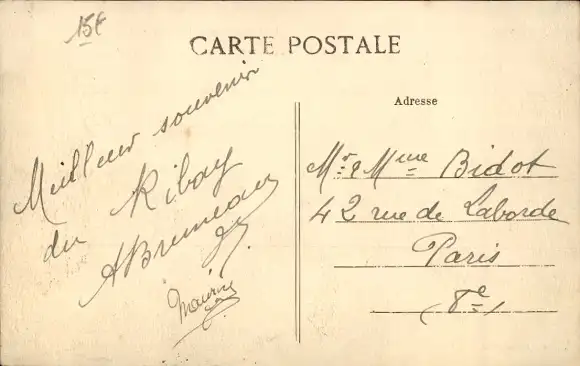 15€
CARTE POSTALE
Adresse
Meilleur souvenir
du Ribay
ABruneau
Maurice
Mr & Mme Bidot
42 rue de Laborde
Paris
8e